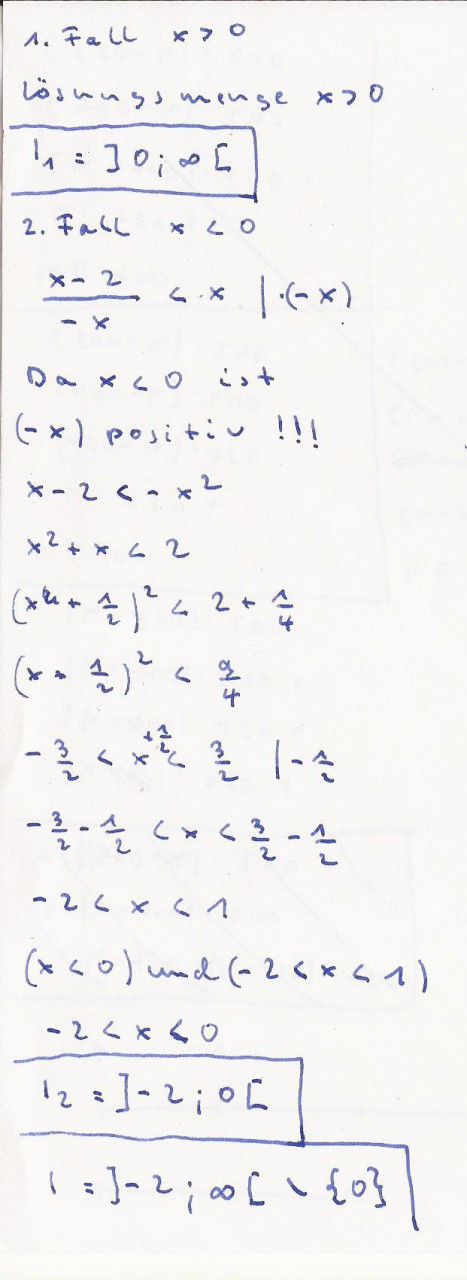 1. Fall x > 0
Lösungsmenge x > 0
L₁ = ]0;∞[
2. Fall x < 0
(x-2)/(-x) < x | ·(-x)
Da x < 0 ist
(-x) positiv !!!
x - 2 < -x²
x² + x < 2
(x + 1/2)² < 2 + 1/4
(x + 1/2)² < 9/4
-3/2 < x + 1/2 < 3/2 | - 1/2
-3/2 - 1/2 < x < 3/2 - 1/2
-2 < x < 1
(x < 0) und (-2 < x < 1)
-2 < x < 0
L₂ = ]-2;0[
L = ]-2;∞[ \ {0}